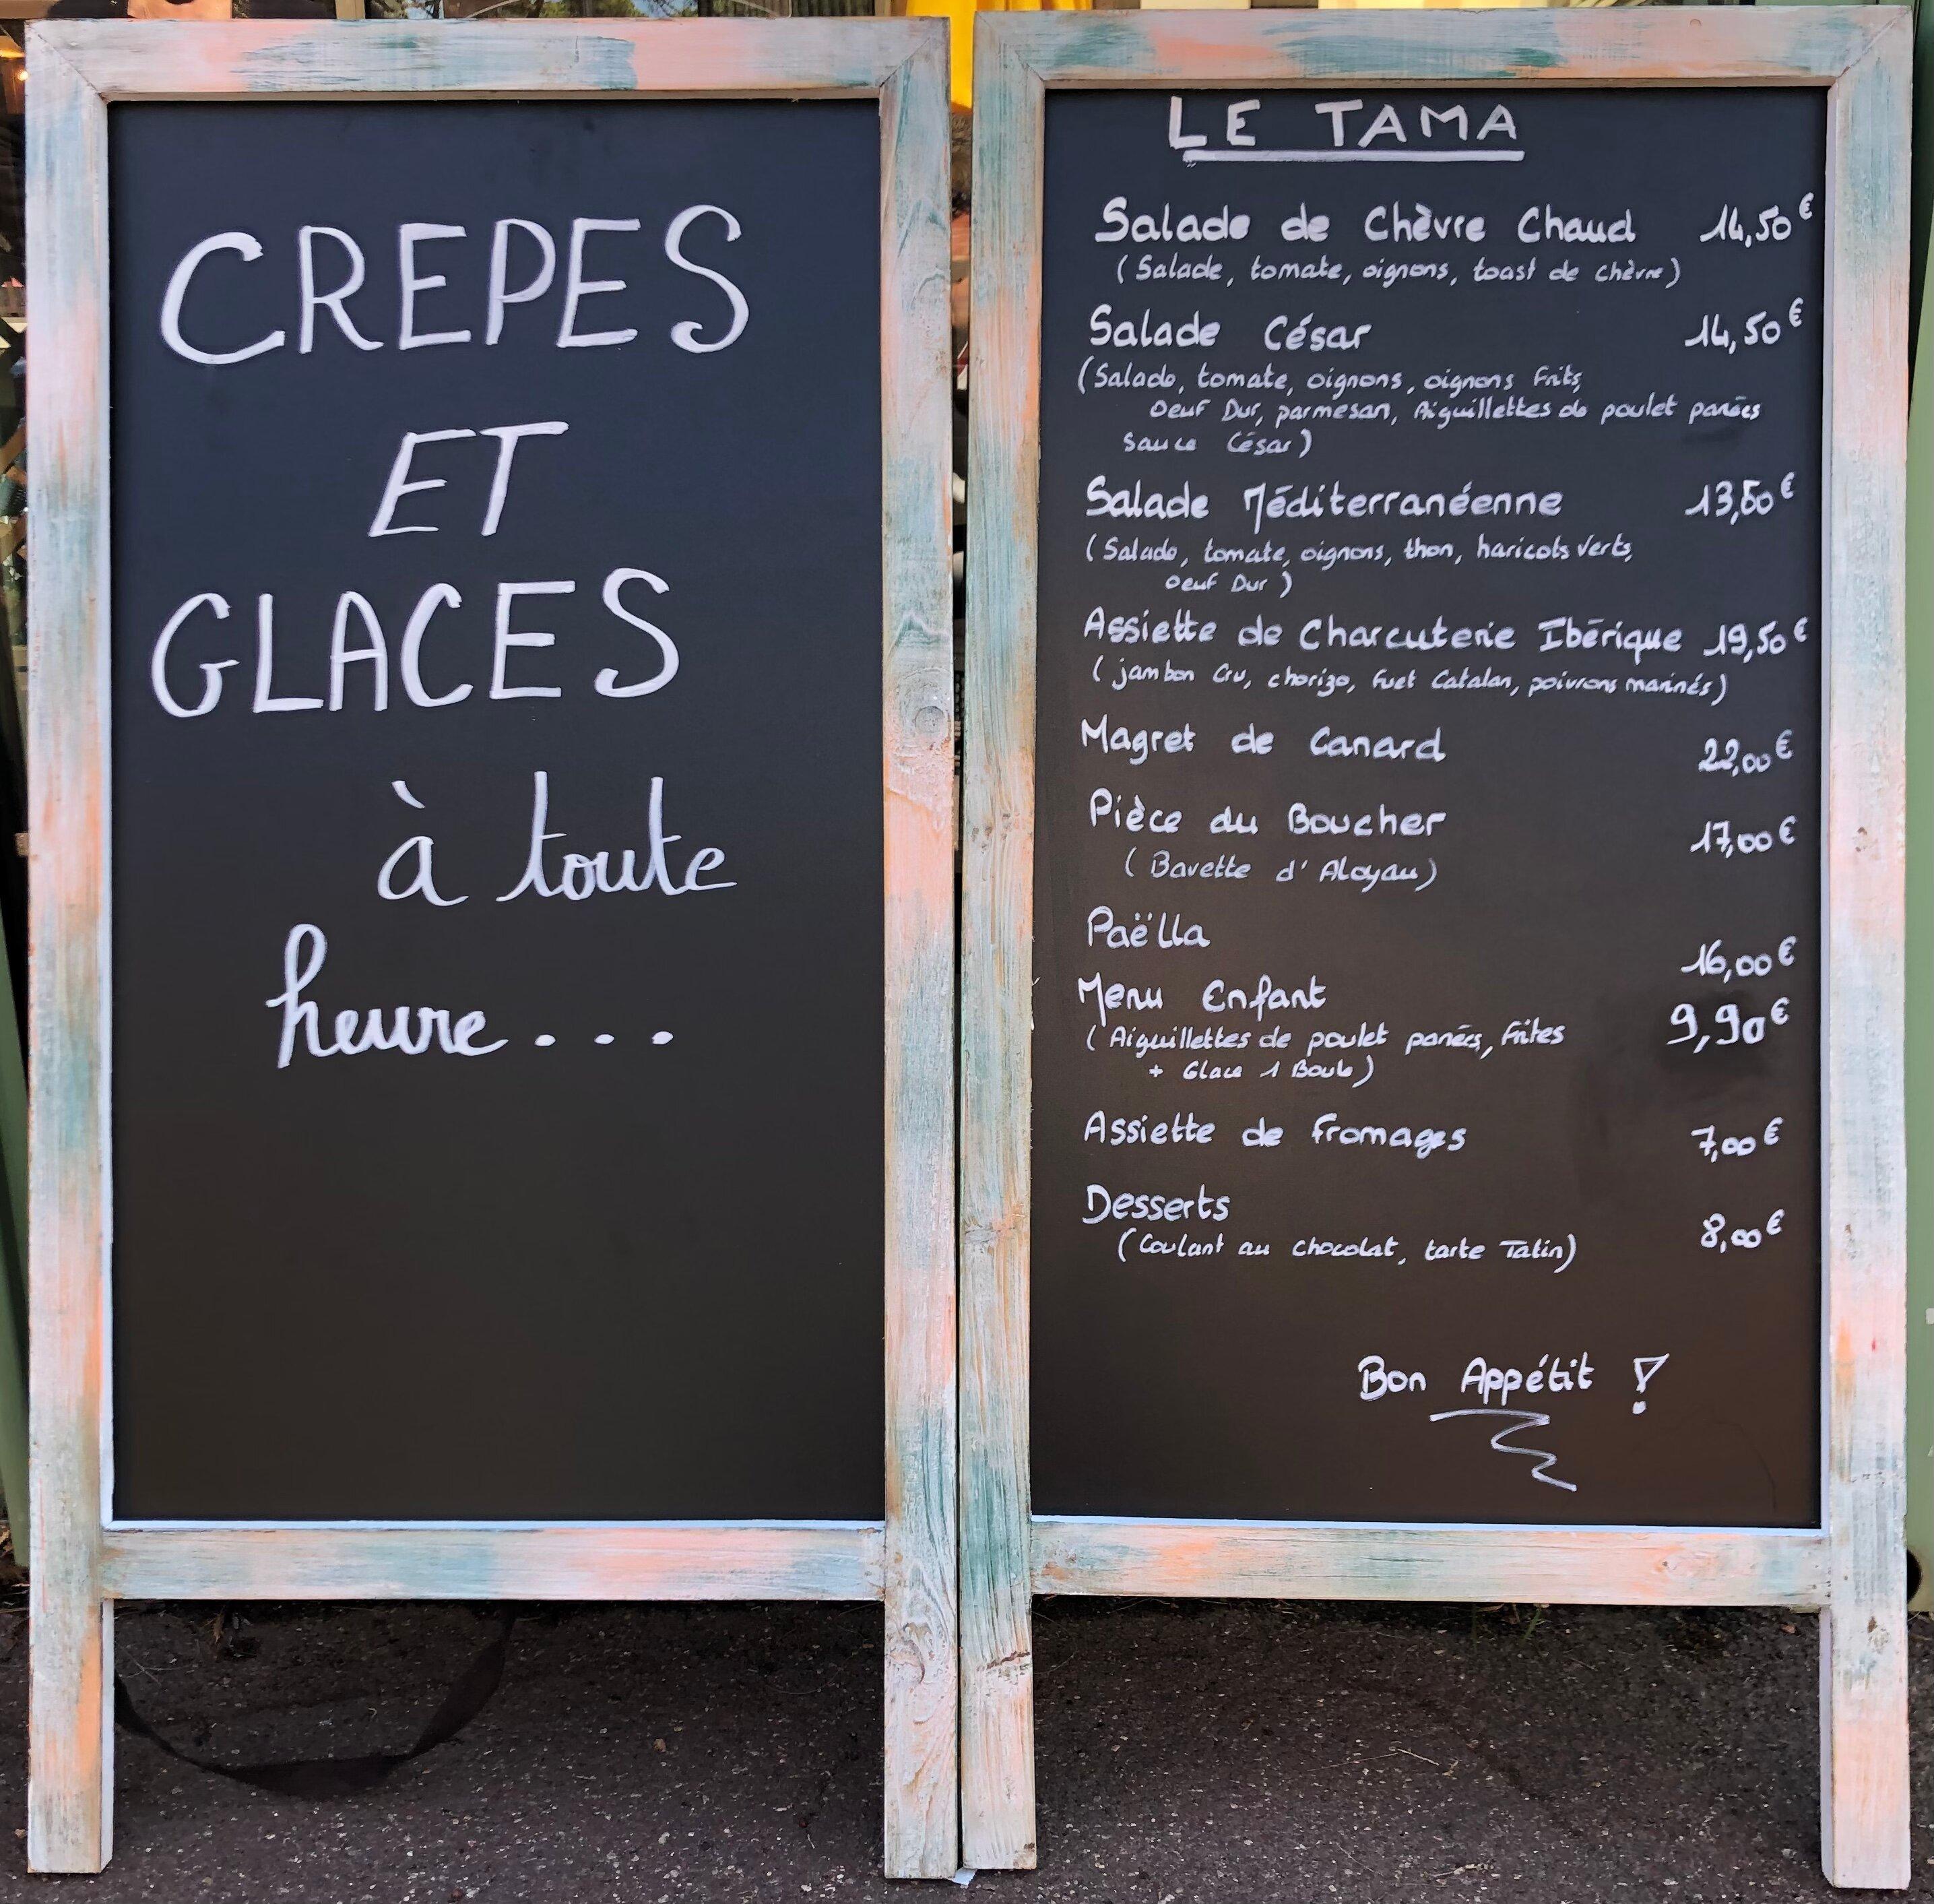 CREPES
ET
GLACES
à toute
heure...
LE TAMA
Salade de Chèvre Chaud 14,50€
(Salade, tomate, oignons, toast de chèvre)
Salade César 14,50€
(Salade, tomate, oignons, oignons Frits,
Oeuf Dur, parmesan, Aiguillettes de poulet panées
Sauce César)
Salade Méditerranéenne 13,50€
(Salade, tomate, oignons, thon, haricots verts,
Oeuf Dur)
Assiette de Charcuterie Ibérique 19,50€
(jambon Cru, chorizo, Fuet Catalan, poivrons marinés)
Magret de Canard 22,00€
Pièce du Boucher 17,00€
(Bavette d'Aloyau)
Paëlla 16,00€
Menu Enfant 9,90€
(Aiguillettes de poulet panées, Frites
+ Glace 1 Boule)
Assiette de fromages 7,00€
Desserts 8,00€
(Coulant au chocolat, tarte Tatin)
Bon Appétit !